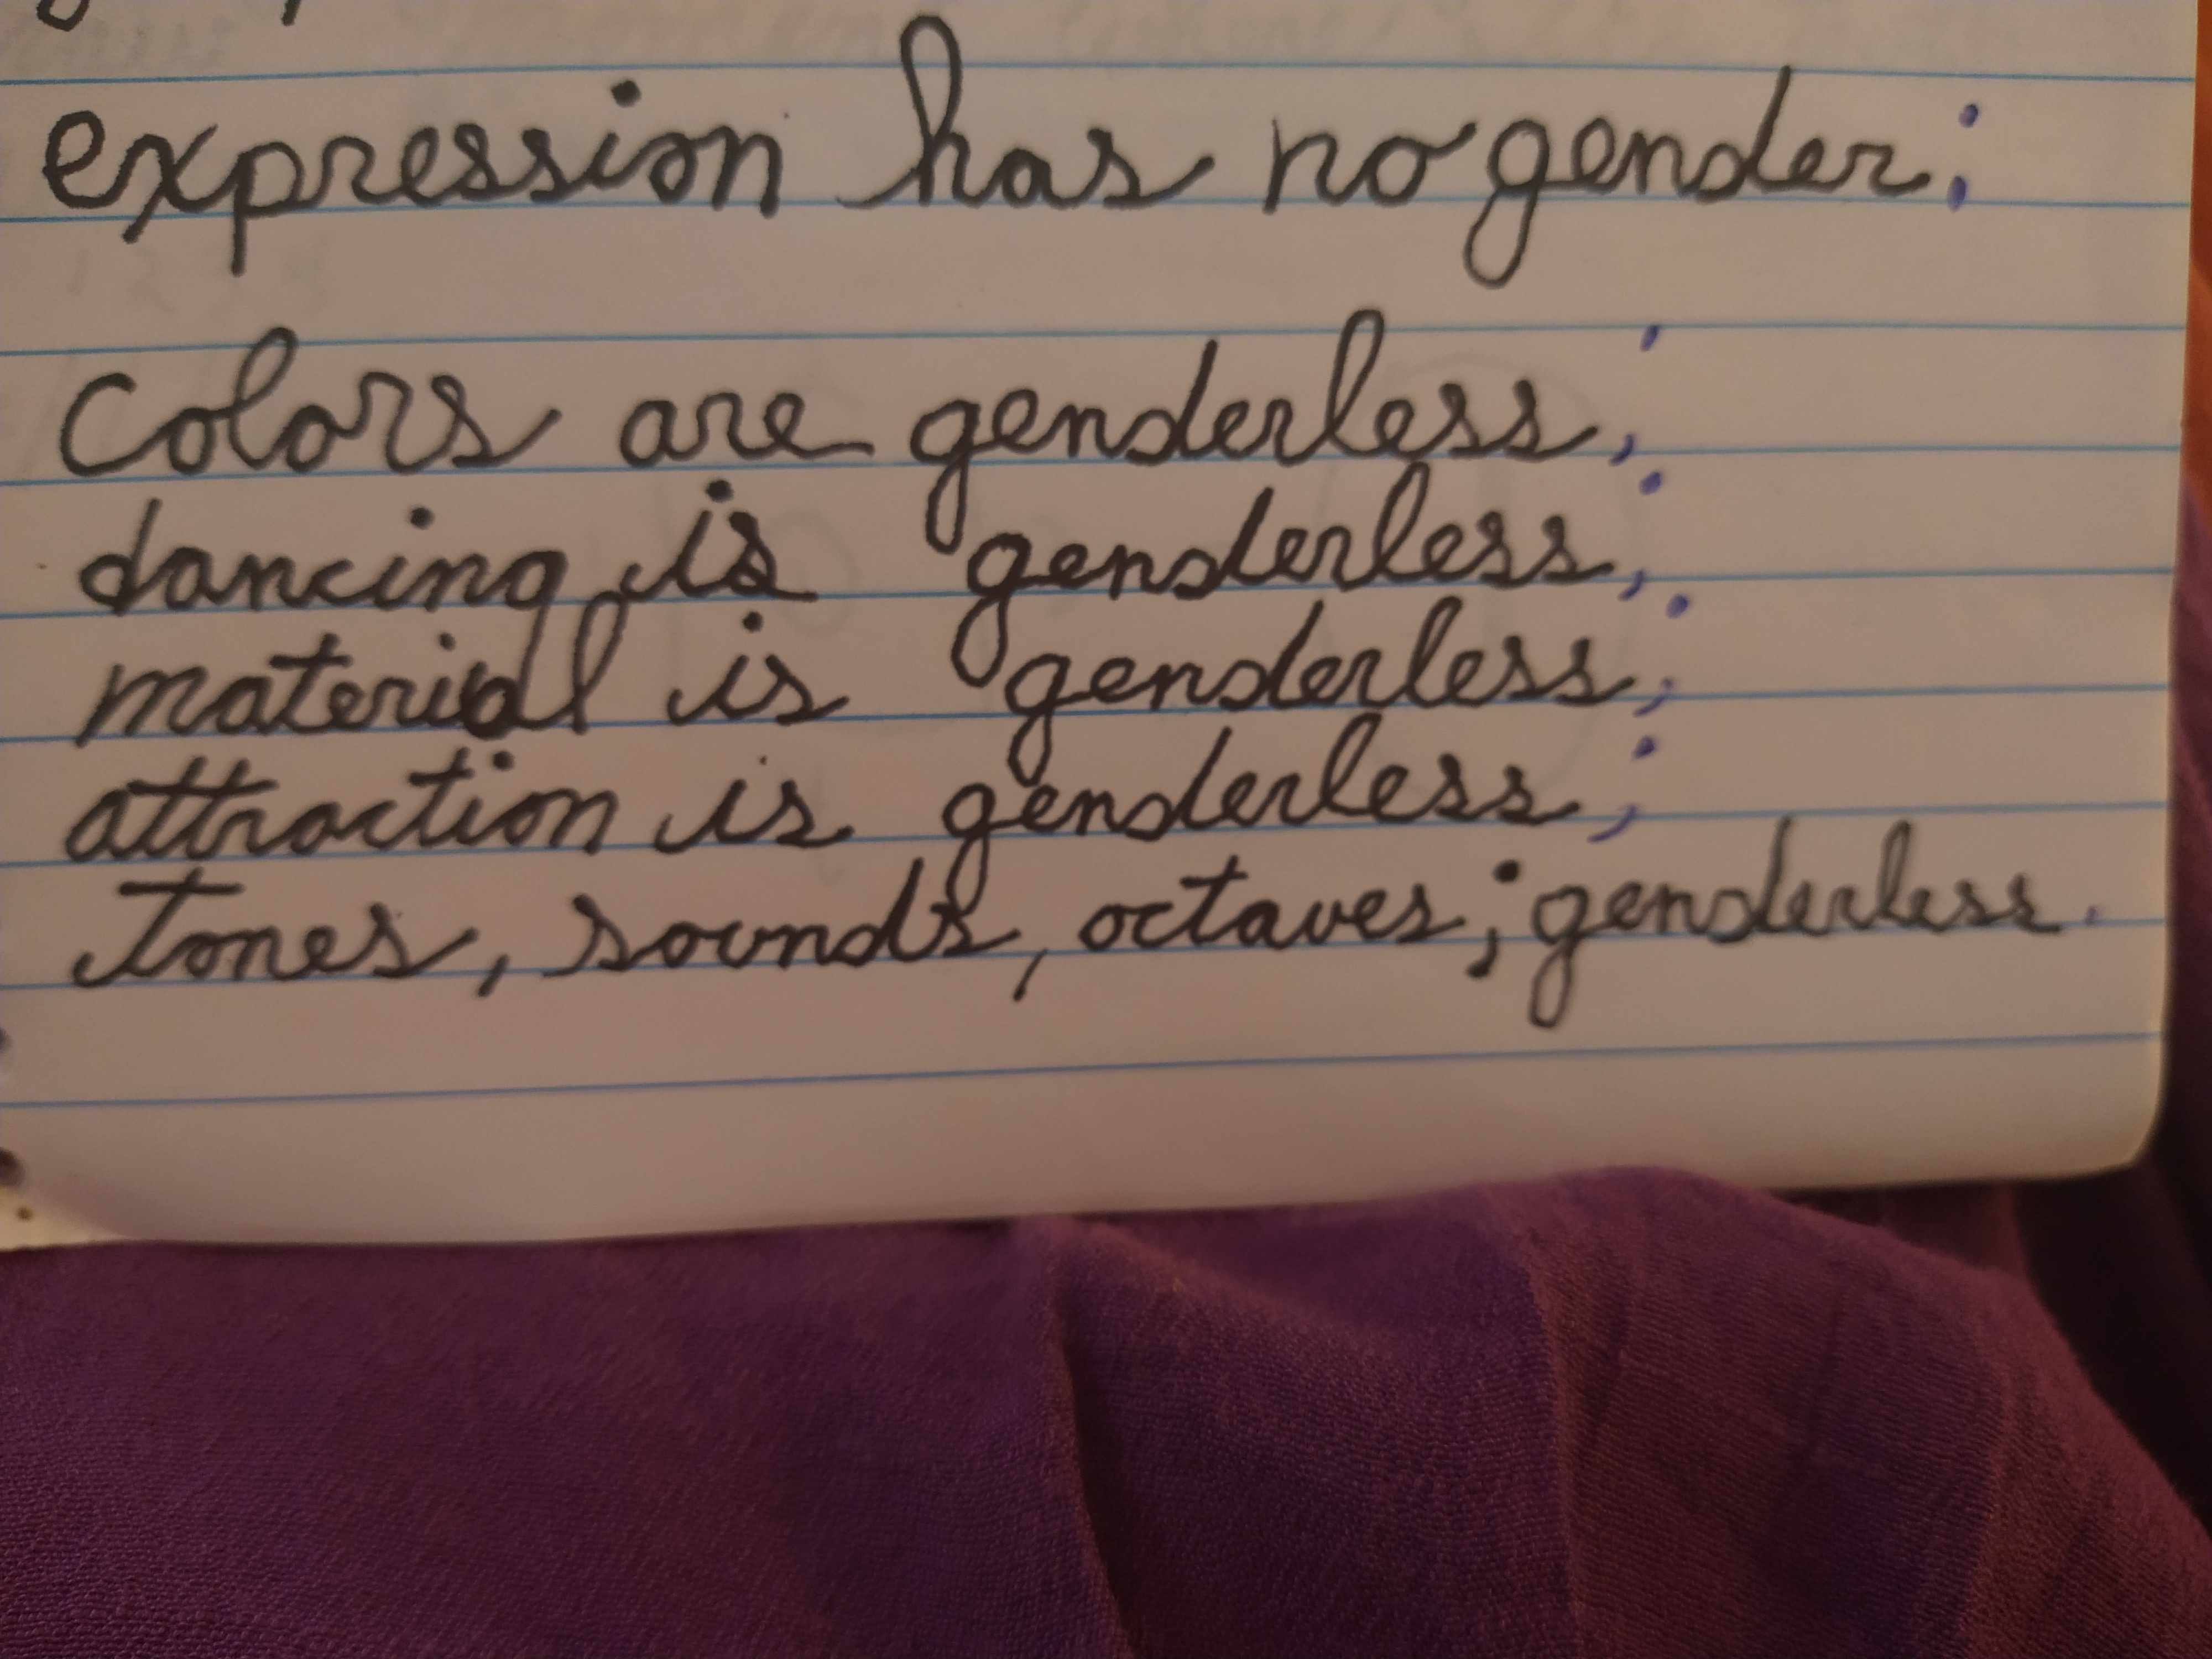 expression has no gender;
colors are genderless;
dancing is genderless;
material is genderless;
attraction is genderless;
tones, sounds, octaves; genderless.